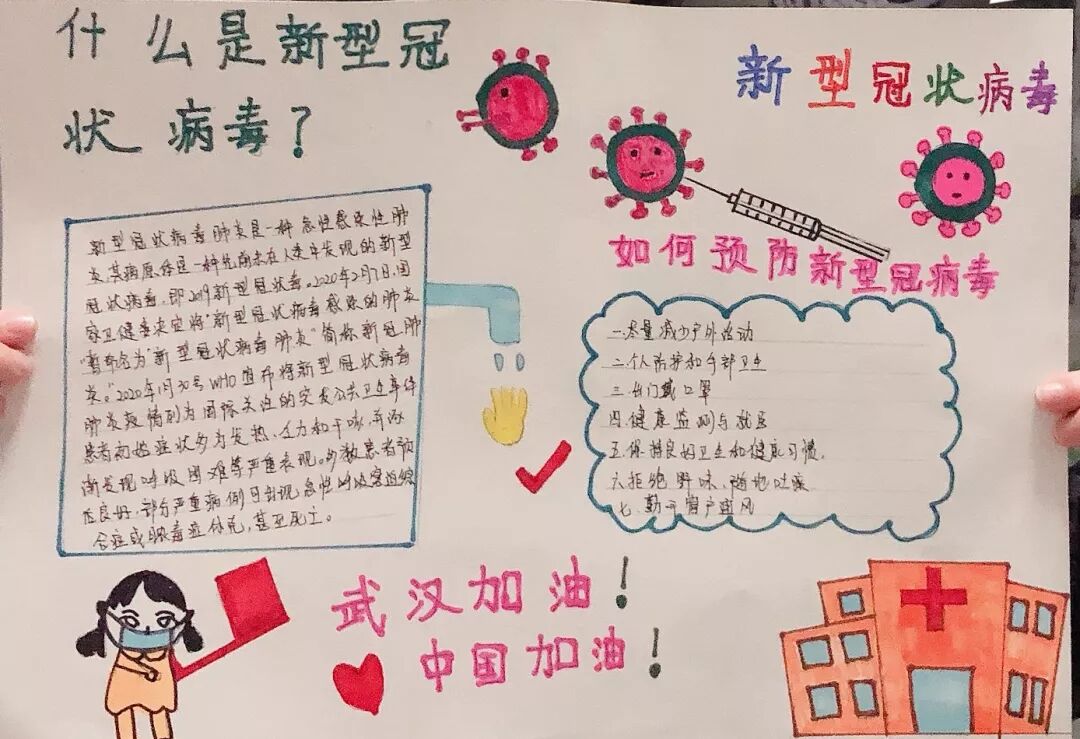 什么是新型冠
状病毒？
新型冠状病毒肺炎是一种急性感染性肺
炎,其病原体是一种先前未在人类中发现的新型
冠状病毒,即2019新型冠状病毒。2020年2月7日,国
家卫健委决定将"新型冠状病毒感染的肺炎
"暂命名为"新型冠状病毒肺炎"简称新冠肺
炎。"2020年1月30号WHO宣布将新型冠状病毒
肺炎疫情列为国际关注的突发公共卫生事件
患者初始症状多为发热、乏力和干咳,并逐
渐出现呼吸困难等严重表现。多数患者预
后良好,部分严重病例可出现急性呼吸窘迫综
合症或脓毒症休克,甚至死亡。
新型冠状病毒
如何预防新型冠病毒
一.尽量减少户外活动
二.个人防护和手部卫生
三.出门戴口罩
四.健康监测与就医
五.保持良好卫生和健康习惯。
六.拒绝野味、随地吐痰
七、勤开窗户通风
武汉加油！
中国加油！